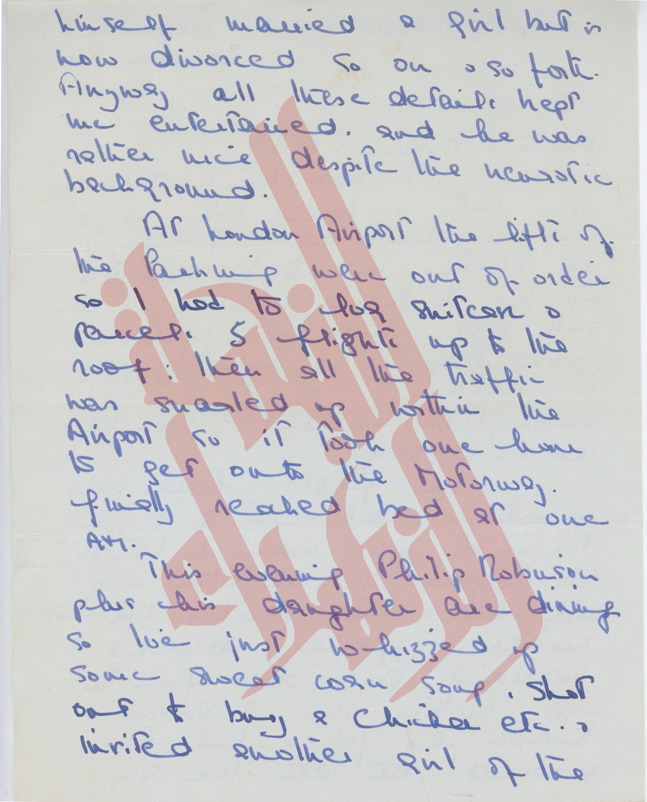 himself married a girl but is
now divorced so on & so forth.
Anyway all these details kept
me entertained. and he was
rather nice despite the neurotic
background.
At London Airport the lifts of
the Parking were out of order
so I had to lug suitcase &
parcels 5 flights up to the
roof: then all the traffic
was snarled up within the
Airport so it took one hour
to get onto the Motorway.
finally reached bed at one
AM.
This evening Philip Robinson
plus his daughter are dining
so I've just whizzed up
some sweet corn soup, shot
out to buy a chicken etc. &
invited another girl of the